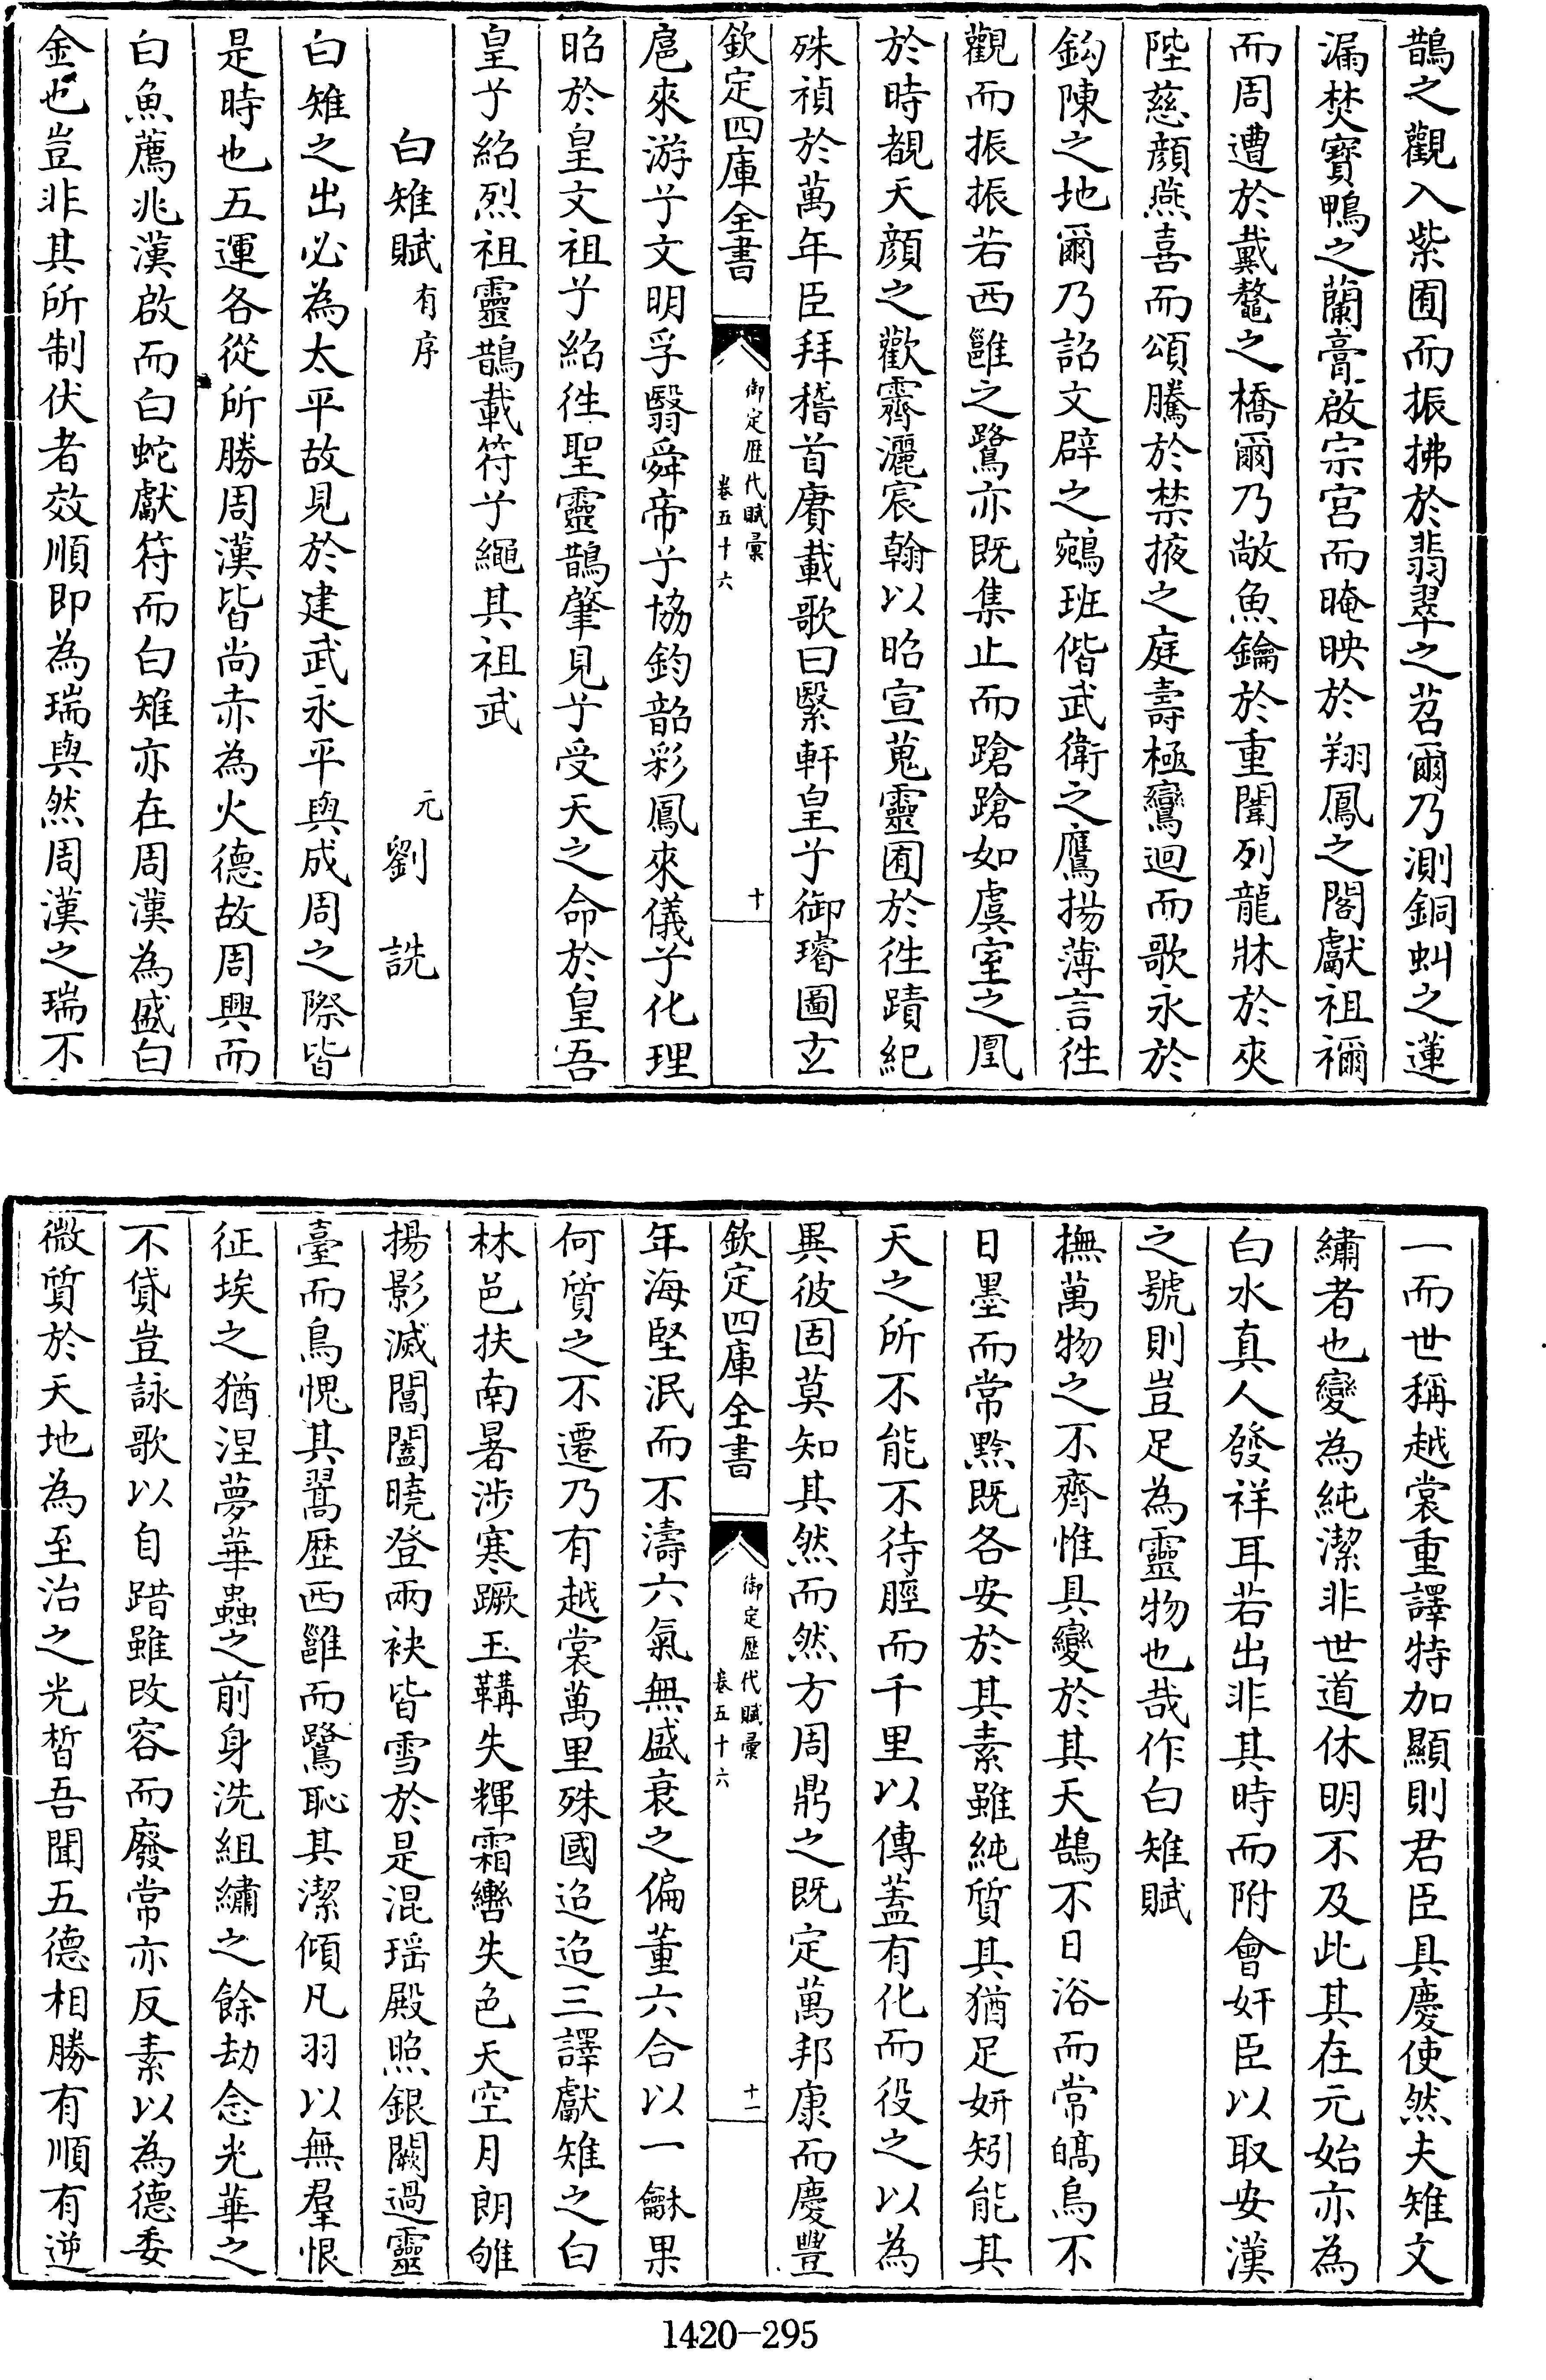 鵲之觀入紫囿而振拂於翡翠之苕爾乃測銅虬之蓮
漏焚寳鴨之蘭膏啟宗宫而晻映於翔鳳之閣獻祖禰
而周遭於戴鼇之橋爾乃敞魚鑰於重闈列龍牀於夾
陛慈顔燕喜而頌騰於禁掖之庭壽極鸞迴而歌永於
鈎陳之地爾乃詔文辟之鵷班偕武衛之鷹揚薄言徃
觀而振振若西雝之鷺亦既集止而蹌蹌如虞室之凰
於時覩天顔之歡霽灑宸翰以昭宣蒐靈囿於徃蹟紀
殊禎於萬年臣拜稽首賡載歌曰繄軒皇兮御璿圖玄
欽定四庫全書
御定歴代賦彙
卷五十六
十
扈來游兮文明孚翳舜帝兮協鈞韶彩鳳來儀兮化理
昭於皇文祖兮紹徃聖靈鵲肇見兮受天之命於皇吾
皇兮紹烈祖靈鵲載符兮繩其祖武
白雉賦有序
元劉詵
白雉之出必為太平故見於建武永平與成周之際皆
是時也五運各從所勝周漢皆尚赤為火德故周興而
白魚薦兆漢啟而白蛇獻符而白雉亦在周漢為盛白
金也豈非其所制伏者效順即為瑞與然周漢之瑞不
一而世稱越裳重譯特加顯則君臣具慶使然夫雉文
繡者也變為純潔非世道休明不及此其在元始亦為
白水真人發祥耳若出非其時而附會奸臣以取安漢
之號則豈足為靈物也哉作白雉賦
撫萬物之不齊惟具變於其天鵠不日浴而常皜烏不
日墨而常黔既各安於其素雖純質其猶足妍矧能其
天之所不能不待脛而千里以傳蓋有化而役之以為
異彼固莫知其然而然方周鼎之既定萬邦康而慶豐
欽定四庫全書
御定歴代賦彙
卷五十六
十一
年海堅泯而不濤六氣無盛衰之偏董六合以一龢果
何質之不遷乃有越裳萬里殊國迢迢三譯獻雉之白
林邑扶南暑涉寒蹶玉鞲失輝霜轡失色天空月朗雊
揚影滅閶闔曉登兩袂皆雪於是混瑶殿照銀闕過靈
臺而鳥愧其翯歴西雝而鷺恥其潔傾凡羽以無羣恨
征埃之猶涅夢華蟲之前身洗組繡之餘劫念光華之
不貸豈詠歌以自踖雖改容而廢常亦反素以為德委
微質於天地為至治之光皙吾聞五德相勝有順有逆
1420—295